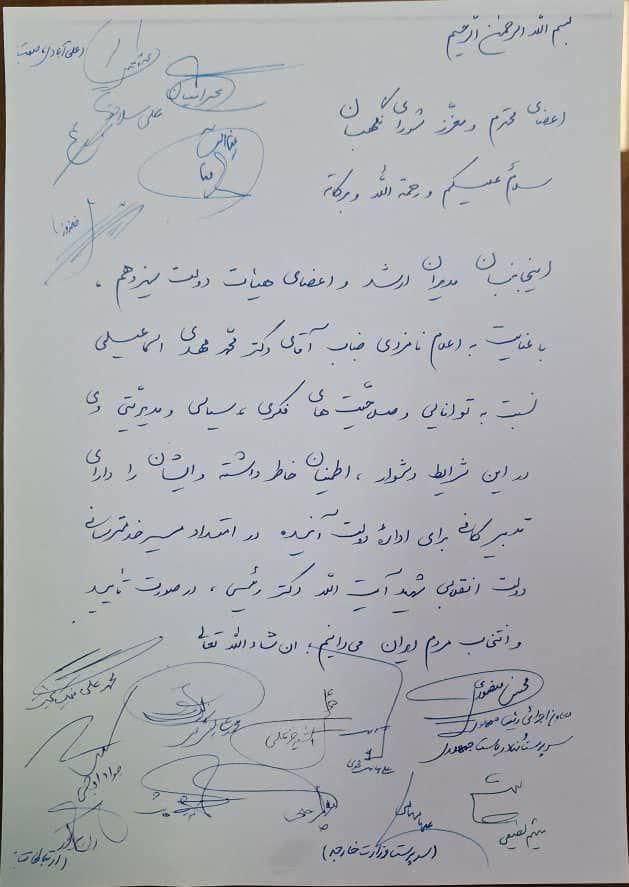 بسم الله الرحمن الرحیم
اعضای محترم و معزز شورای نگهبان
سلام علیکم و رحمة الله و برکاته
اینجانبان مدیران ارشد و اعضای هیأت دولت سیزدهم ،
با عنایت به اعلام نامزدی جناب آقای دکتر محمد مهدی اسماعیلی
نسبت به توانایی و صلاحیت های فکری ، سیاسی و مدیریتی وی
در این شرایط دشوار ، اطمینان خاطر داشته و ایشان را دارای
تدبیر کافی برای اداره دولت آینده در امتداد مسیر خدمترسانی
دولت انقلابی شهید آیت الله دکتر رئیسی ، در صورت تأیید
و انتخاب مردم ایران می‌دانیم ؛ ان شاء الله تعالی
محسن منصوری
معاون اجرائی رئیس جمهور
سرپرست نهاد ریاست جمهوری
میثم لطیفی
(سرپرست وزارت خارجه)
(ارتباطات)